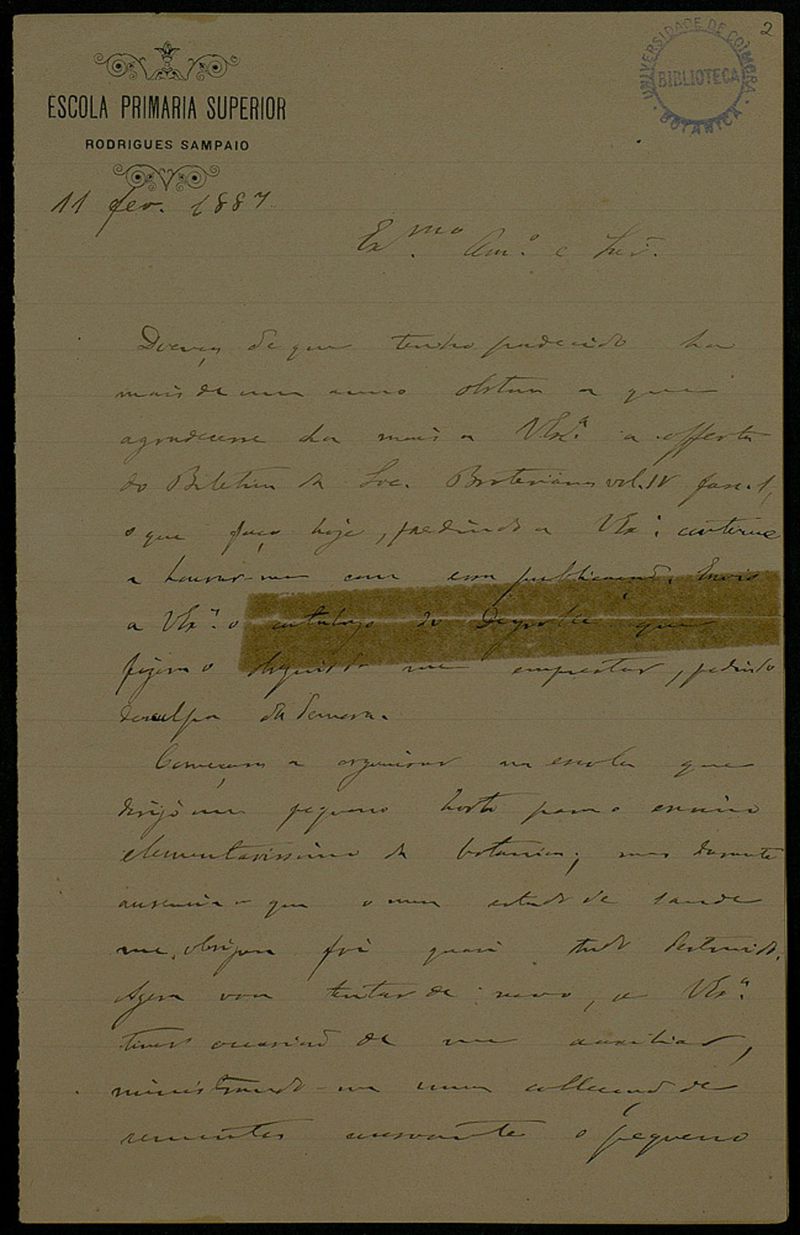 2
UNIVERSIDADE DE COIMBRA
BIBLIOTECA
BOTANICA
ESCOLA PRIMARIA SUPERIOR
RODRIGUES SAMPAIO
11 fev. 1887
Ex.mo Am.o e
Doença de que tenho padecido ha
mais de um anno obstou a que
agradecesse ha mais a VEx.a a offerta
do Boletim da Soc. Broteriana vol. IV fasc. 1,
o que faço hoje, pedindo a VEx.a continue
a honrar-me com essa publicação. Envio
a VEx.a o catalogo do que
me emprestar, pedindo
desculpa da demora.
Começara a organisar na escola que
dirijo um pequeno horto para o ensino
elementarissimo da botanica; mas durante
ausencia a que o meu estado de saude
me obrigou foi quasi tudo destruido.
Agora vou tentar de novo, se VEx.a
tiver occasião de me auxiliar,
ministrando-me uma collecção de
sementes o pequeno